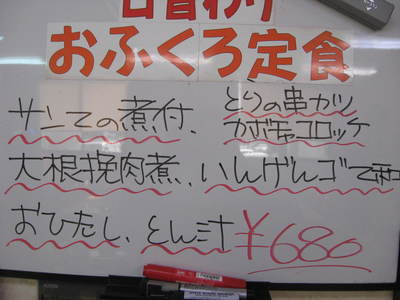 日替わり
おふくろ定食
サンマの煮付、とらの串カツ
かぼちゃコロッケ
大根挽肉煮、いんげんゴマ和え
おひたし、とん汁 ¥680